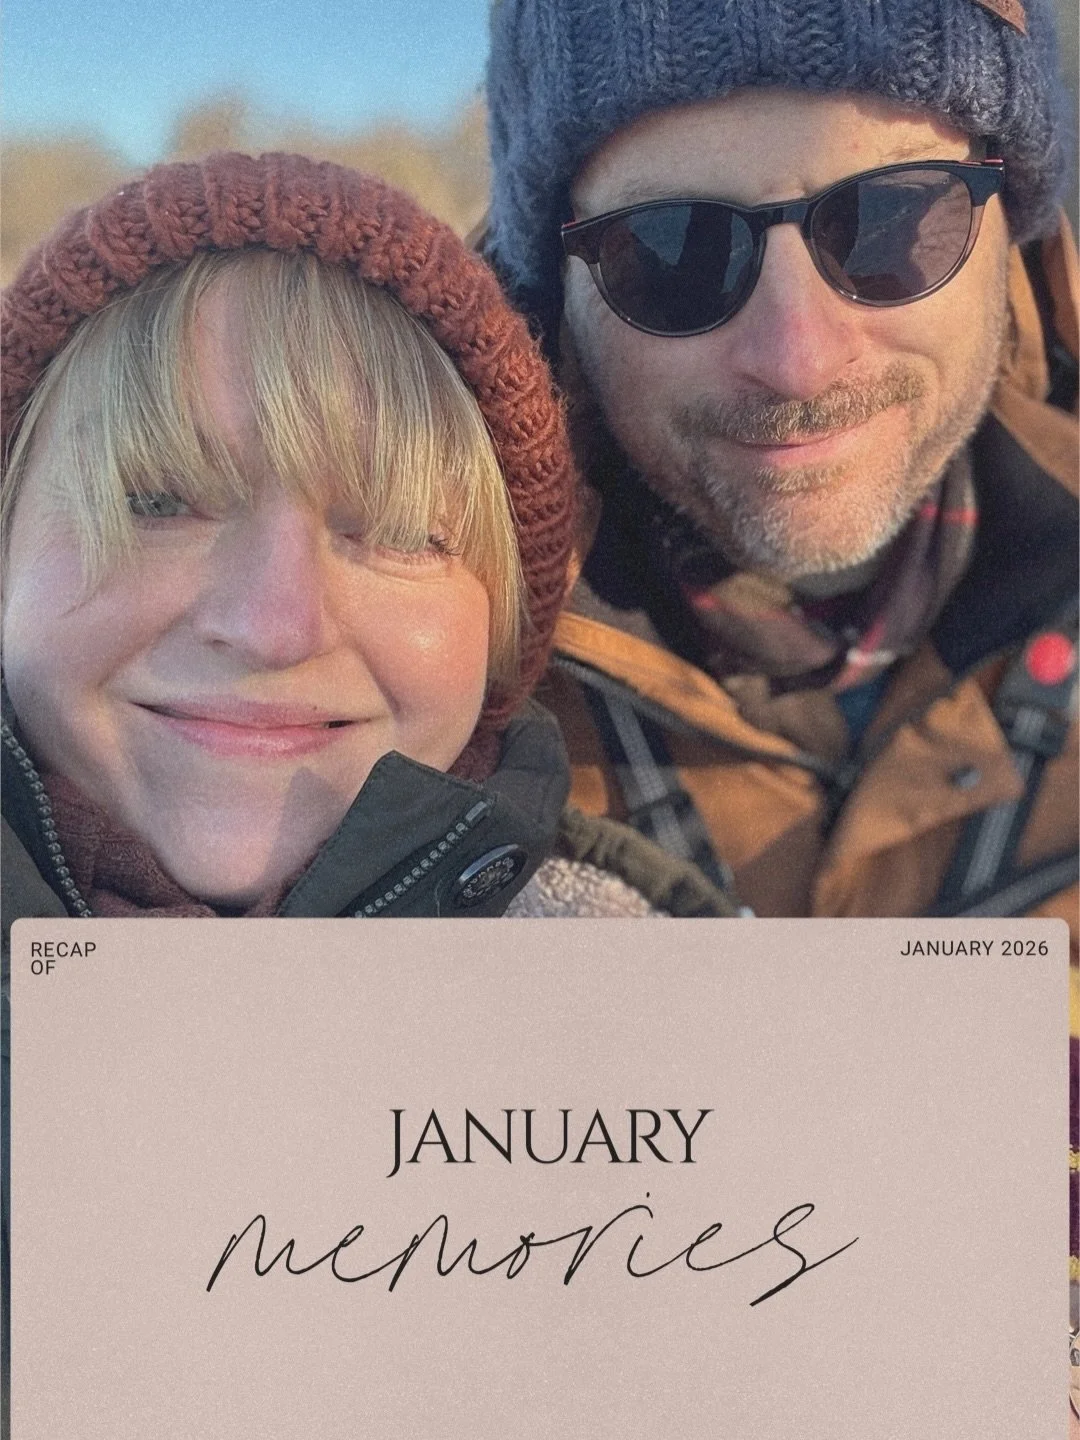 RECAP
OF
JANUARY 2026
JANUARY
memories